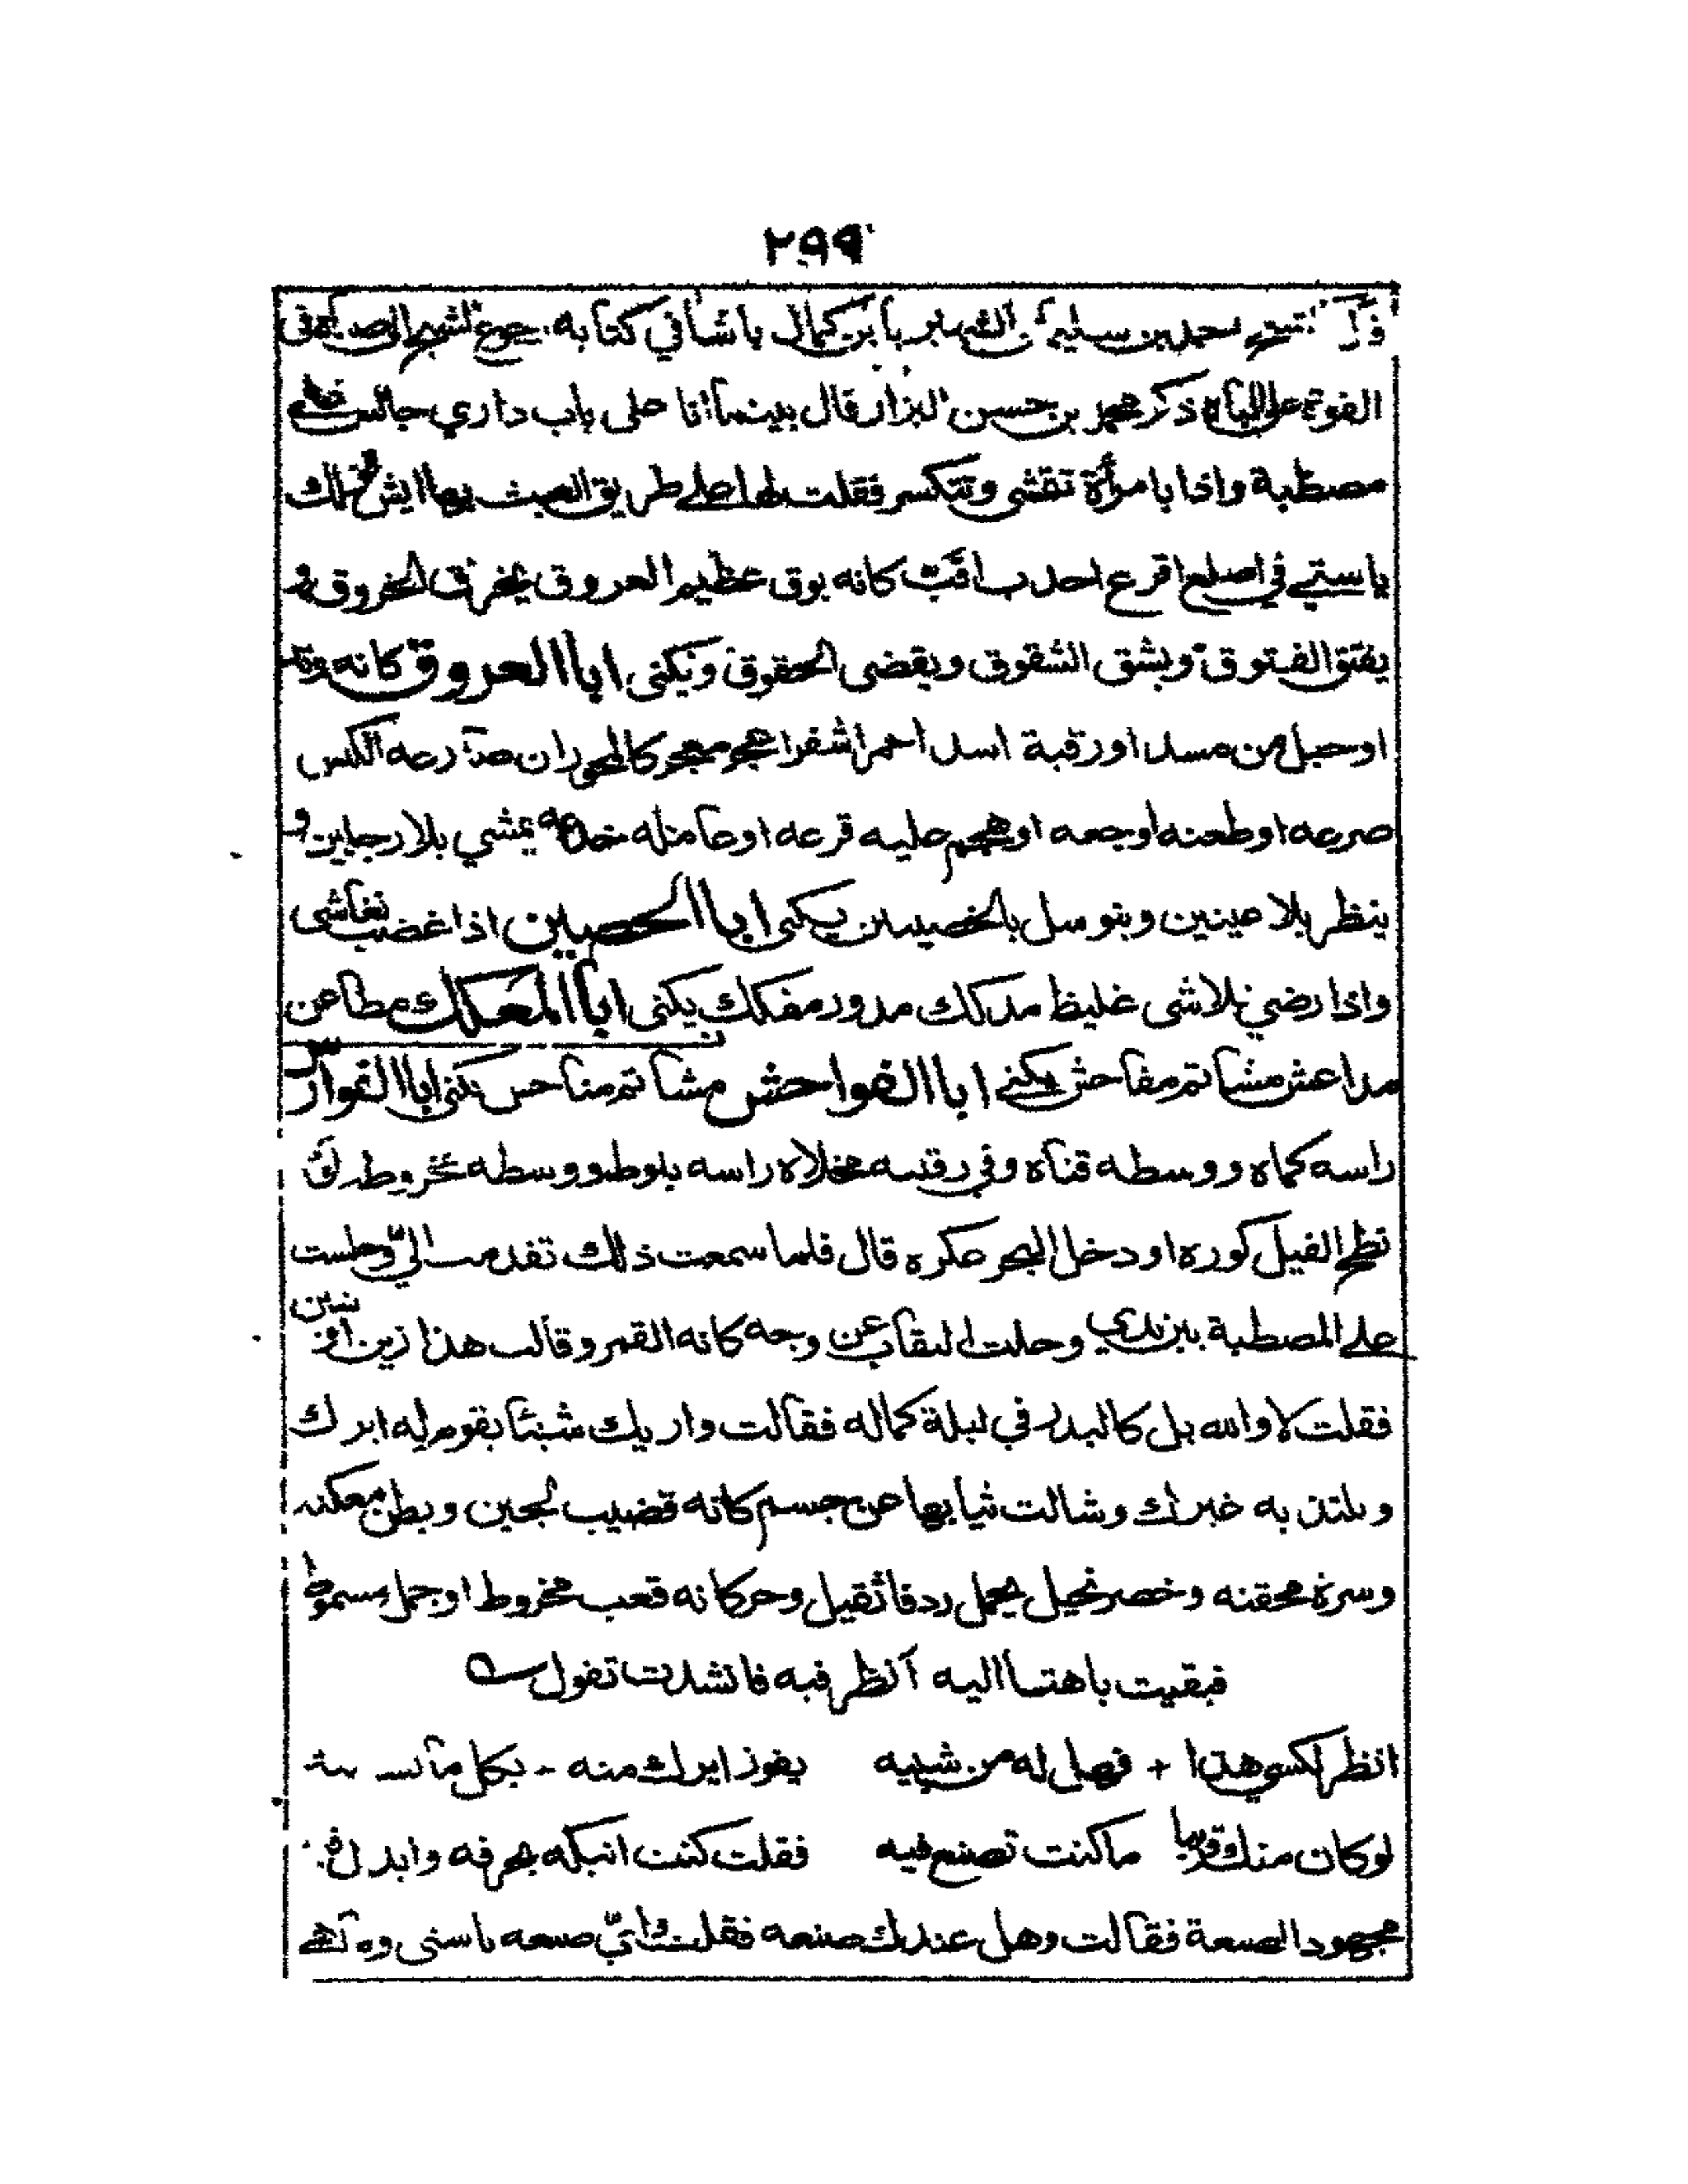 ٢٩٩
احمد بن سليمان الشهير بابن كمال باشا في كتابه رجوع الشيخ الى صباه في
القوة على الباه ذكر محمد بن حسن البزار قال بينما انا على باب داري جالس على
مصطبة واذا بامرأة تقشى وتتكسر فقلت لها على طريق العبث بها ايش لك
ياستي في اصلع اقرع احدب اقب كانه بوق عظيم العروق يخرق الخروق و
يفتق الفتوق ويشق الشقوق ويقضى الحقوق ويكنى ابا العروق كانه وتد
اوحبل من مسد اورقبة اسد احمر اشقر اعجر معجر كالمحور ان صارعه الكس
صرعه اوطعنه اوجعه اوهجم عليه قرعه اوخاتله خدعه يمشي بلا رجلين و
ينظر بلا عينين ويتوسل بالخصيتين يكنى ابا الحصين اذا غضب تغاشى
واذا رضي تلاشى غليظ مدكلك مدور مفكلك يكنى ابا المعكلك مطاعن
مداعش مشاتم مفاحش يكنى ابا الفواحش مشاتم مناحس يكنى ابا الفوارس
راسه كماه ووسطه قناه وفي رقبته مخلاه راسه بلوطه ووسطه مخروطه لو
نطح الفيل كوره اودخل البحر عكره قال فلما سمعت ذلك تقدمت الي وجلست
على المصطبة بين يدي وحلت النقاب عن وجه كانه القمر وقالت هذا زين او شين
فقلت لا والله بل كالبدر في ليلة كماله فقالت واريك شيئا يقوم له ايرك
ويلتذ به غيرك وشالت ثيابها عن جسم كانه قضيب لجين وبطن معكنه
وسرة محقنه وخصر نحيل يحمل ردفا ثقيل وحر كانه قعب مخروط اوجمل مسموط
فبقيت باهتا اليه انظر فيه فانشدت تقول
انظر لكسي هذا + فهل له من شبيه يفوز ايرك منه - بكل ما
لوكان منك قريبا ماكنت تصنع فيه فقلت كنت انيكه بحرفه وابدل فيه
مجهود الصنعة فقالت وهل عندك صنعه فقلت اي صنعه ياستي وما هي